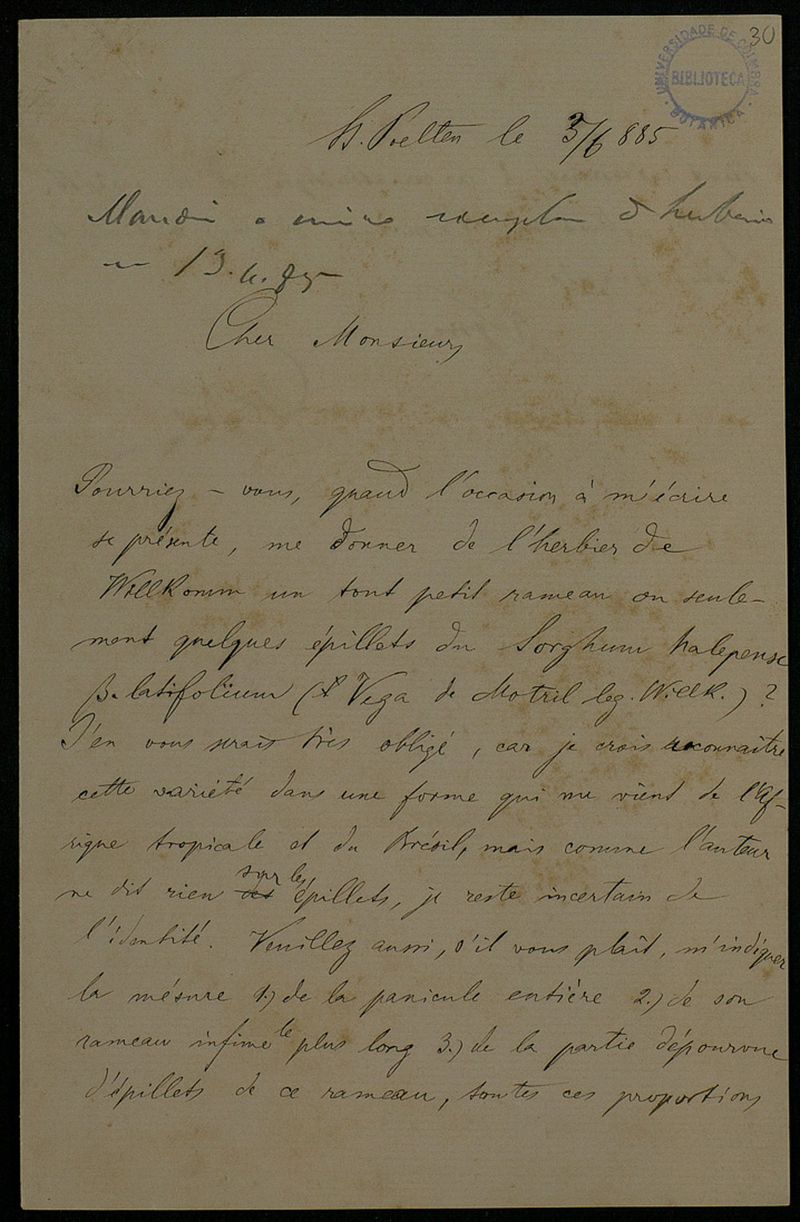 30
UNIVERSIDADE DE COIMBRA
BIBLIOTECA
BOTANICA
St. Poelten le 3/6 885
Mandei o unico exemplar d herbario
13.6.85
Cher Monsieur,
Pourriez-vous, quand l'occasion à m'écrire
se présente, me donner de l'herbier de
Willkomm un tout petit rameau ou seule-
ment quelques épillets du Sorghum halepense
β. latifolium (Vega de Motril leg. Willk.) ?
J'en vous serais très obligé, car je crois reconnaitre
cette variété dans une forme qui me vient de l'Af-
rique tropicale et du Brésil, mais comme l'auteur
ne dit rien des sur les épillets, je reste incertain de
l'identité. Veuillez aussi, s'il vous plaît, m'indiquer
la mésure 1.) de la panicule entière 2.) de son
rameau infime le plus long 3.) de la partie dépourvue
d'épillets de ce rameau, toutes ces proportions